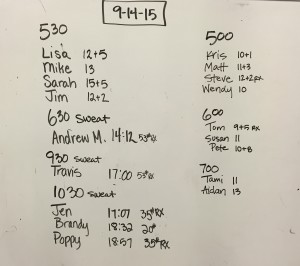 9-14-15
530
Lisa 12+5
Mike 13
Sarah 15+5
Jim 12+2
630 Sweat
Andrew M. 14:12 53#RX
930 Sweat
Travis 17:00 53#
1030 Sweat
Jen 17:07 35#RX
Brandy 18:32 20#
Poppy 18:57 35#RX
500
Kris 10+1
Matt 11+3
Steve 12+2RX
Wendy 10
600
Tom 9+5 RX
Susan 11
Pete 10+8
700
Tami 11
Aidan 13